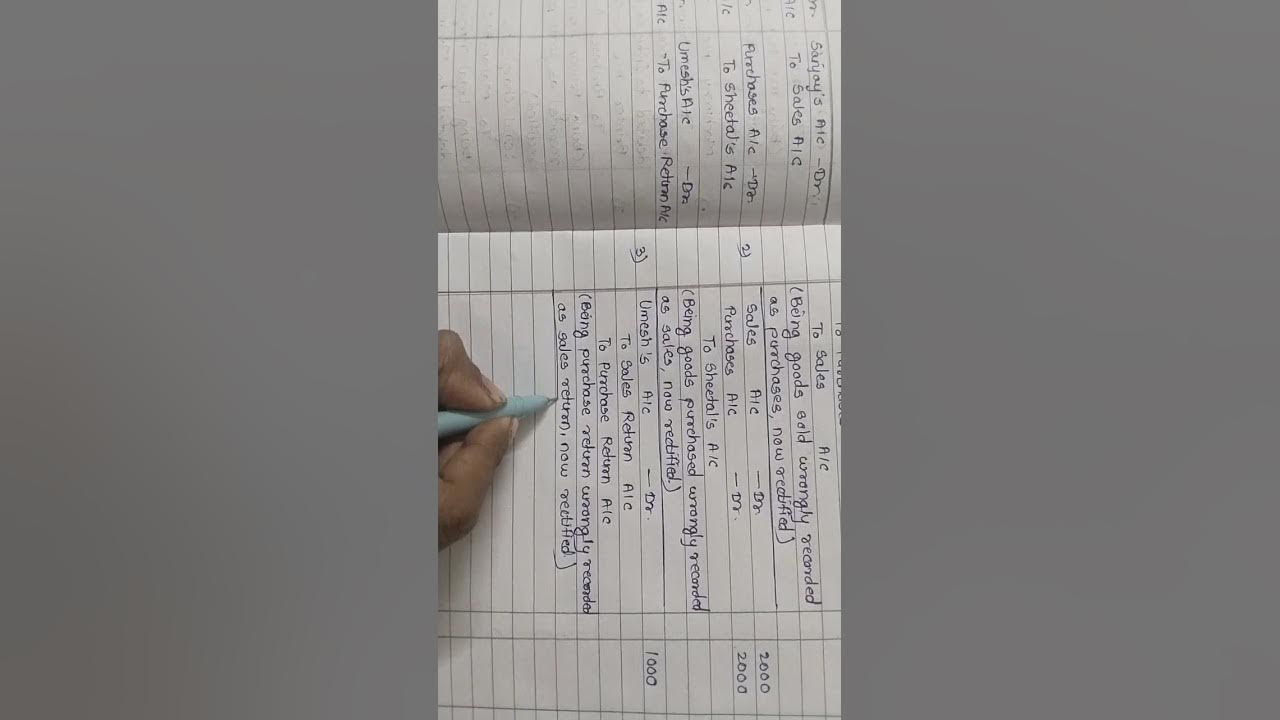 Sanjay's A/c -Dr.
To Sales A/c
Purchases A/c -Dr.
To Sheetal's A/c
Umesh's A/c - Dr.
A/c -To Purchase Return A/c
To Sales A/c
(Being goods sold wrongly recorded
as purchases, now rectified)
2) Sales A/c - Dr. 2000
Purchases A/c - Dr. 2000
To Sheetal's A/c
(Being goods purchased wrongly recorded
as sales, now rectified.)
3) Umesh's A/c - Dr. 1000
To Sales Return A/c
To Purchase Return A/c
(Being purchase return wrongly recorded
as sales return, now rectified.)